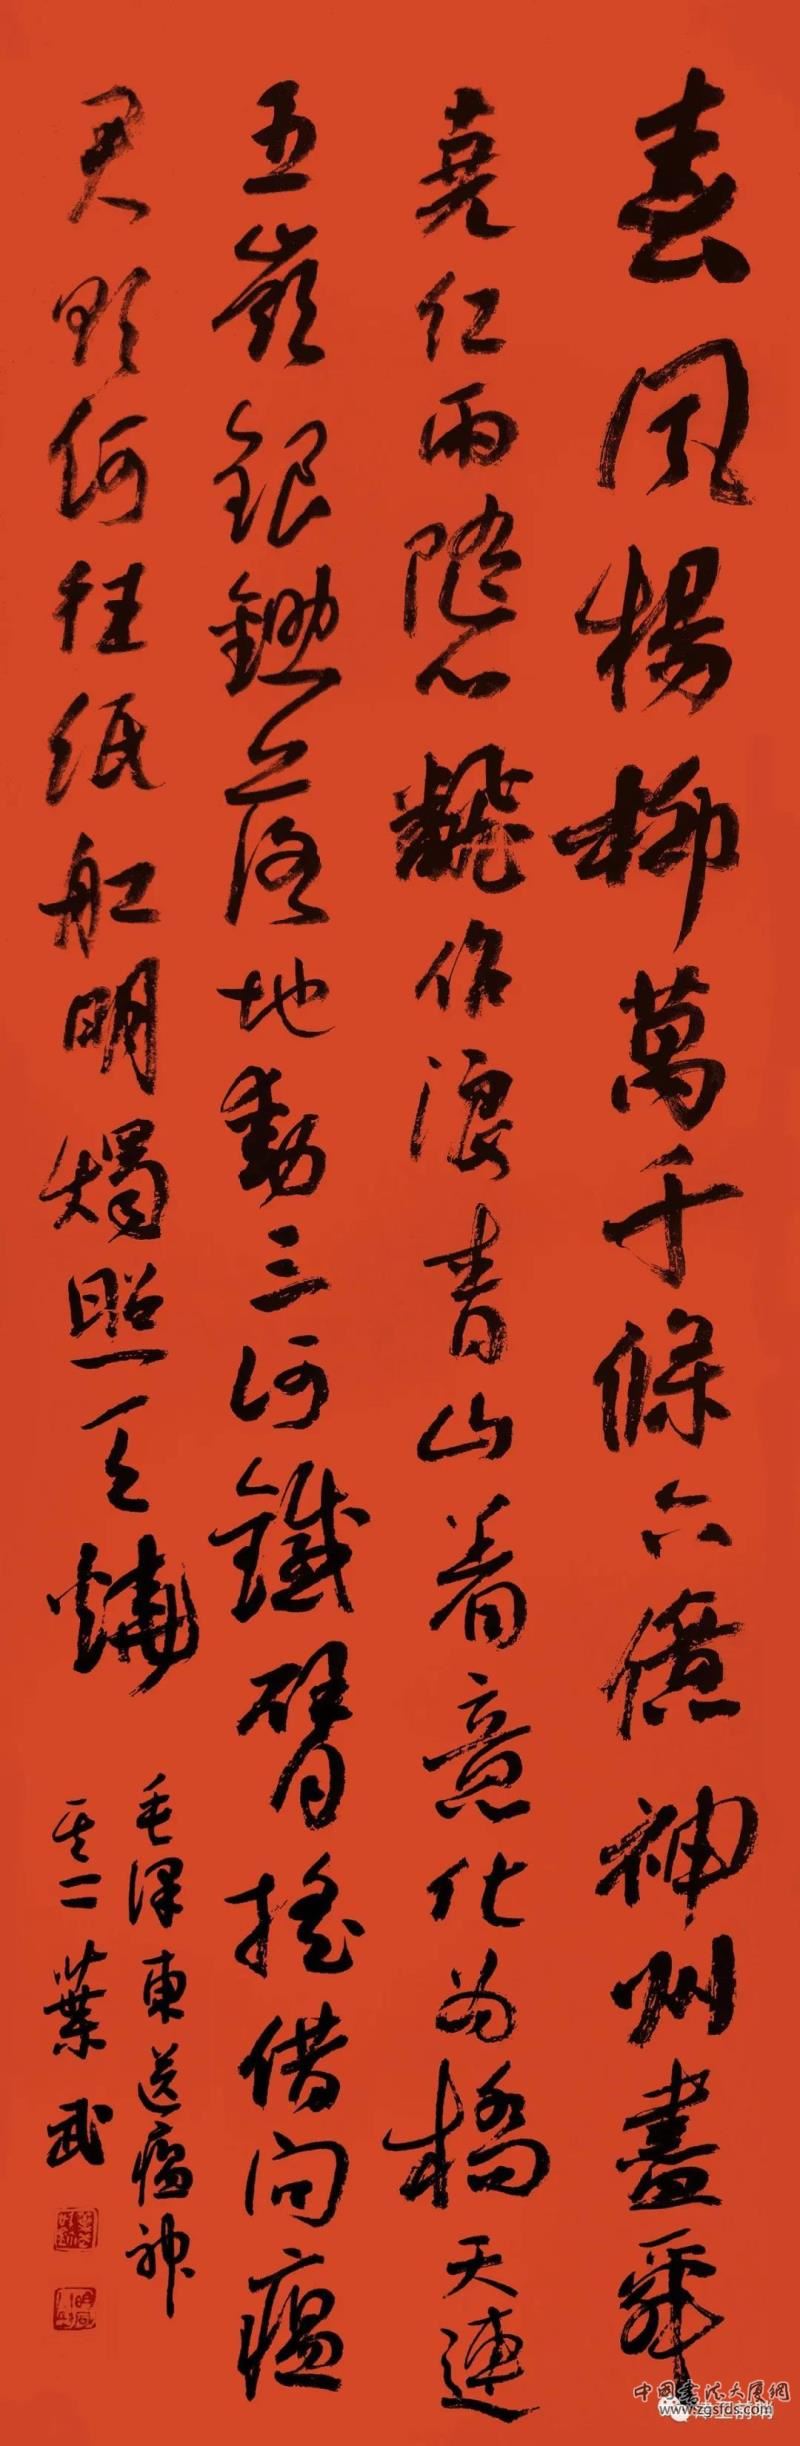 春風楊柳萬千條六億神州盡舜
堯紅雨隨心飜作浪青山着意化為橋天連
五嶺銀鋤落地動三河鐵臂搖借問瘟
君欲何往紙舡明燭照天燒
毛澤東送瘟神
其二葉武
中國書法大厦網
www.zgsfds.com